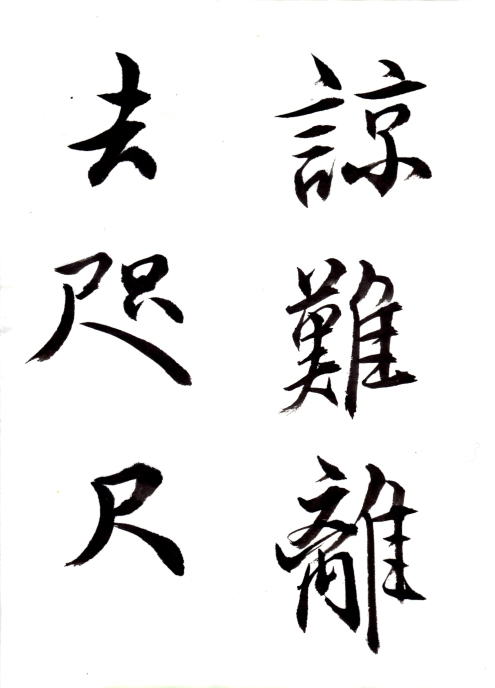 諒難離
去咫尺